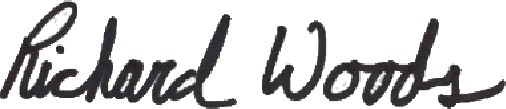 Richard Woods